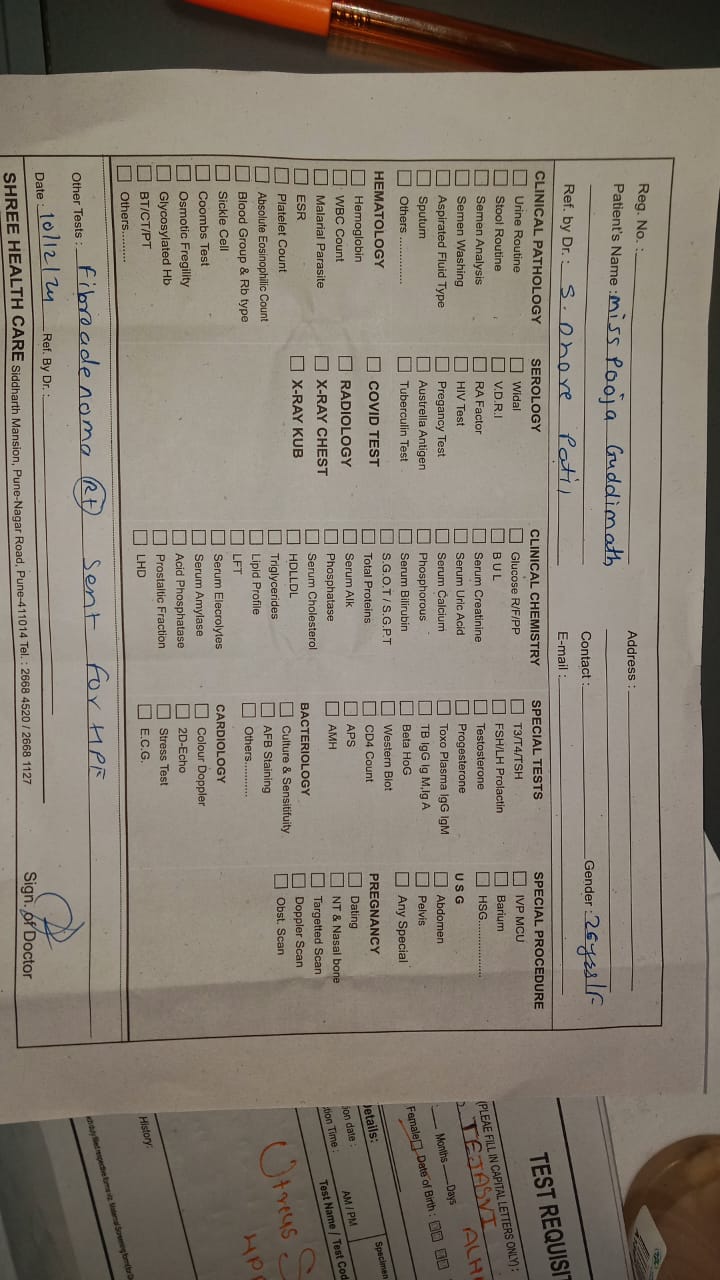 Reg. No. :
Address :
Patient's Name : miss Pooja Guddimath
Contact :
Gender : 26yrs/F
Ref. by Dr. : S. Dhore Patil
E-mail :
CLINICAL PATHOLOGY
Urine Routine
Stool Routine
Semen Analysis
Semen Washing
Aspirated Fluid Type
Sputum
Others .............
HEMATOLOGY
Hemoglobin
WBC Count
Malarial Parasite
ESR
Platelet Count
Absolute Eosinophilic Count
Blood Group & Rb type
Sickle Cell
Coombs Test
Osmotic Fregility
Glycosylated Hb
BT/CT/PT
Others.........
SEROLOGY
Widal
V.D.R.I
RA Factor
HIV Test
Pregancy Test
Austrella Antigen
Tuberculin Test
COVID TEST
RADIOLOGY
X-RAY CHEST
X-RAY KUB
CLINICAL CHEMISTRY
Glucose R/F/PP
B U L
Serum Creatinine
Serum Uric Acid
Serum Calcium
Phosphorous
Serum Bilirubin
S.G.O.T / S.G.P.T
Total Proteins
Serum Alk
Phosphatase
Serum Cholesterol
HDLLDL
Triglycerides
Lipid Profile
LFT
Serum Elecrolytes
Serum Amylase
Acid Phosphatase
Prostaltic Fraction
LHD
SPECIAL TESTS
T3/T4/TSH
FSH/LH Prolactin
Testosterone
Progesterone
Toxo Plasma IgG IgM
TB IgG Ig M,Ig A
Beta HoG
Western Blot
CD4 Count
APS
AMH
BACTERIOLOGY
Culture & Sensitifuity
AFB Staining
Others..........
CARDIOLOGY
Colour Doppler
2D-Echo
Stress Test
E.C.G.
SPECIAL PROCEDURE
IVP MCU
Barium
HSG................
U S G
Abdomen
Pelvis
Any Special
PREGNANCY
Dating
NT & Nasal bone
Targetted Scan
Doppler Scan
Obst. Scan
Other Tests : fibroadenoma Rt sent for HPE
Date : 10/12/24 Ref. By Dr. :
Sign. of Doctor
SHREE HEALTH CARE Siddharth Mansion, Pune-Nagar Road, Pune-411014 Tel. : 2668 4520 / 2668 1127
TEST REQUISI
(PLEAE FILL IN CAPITAL LETTERS ONLY) :
TEJASVI
Months Days
Female Date of Birth :
etails:
Specimen
ion date :
AM / PM
tion Time :
Test Name / Test Cod
History: